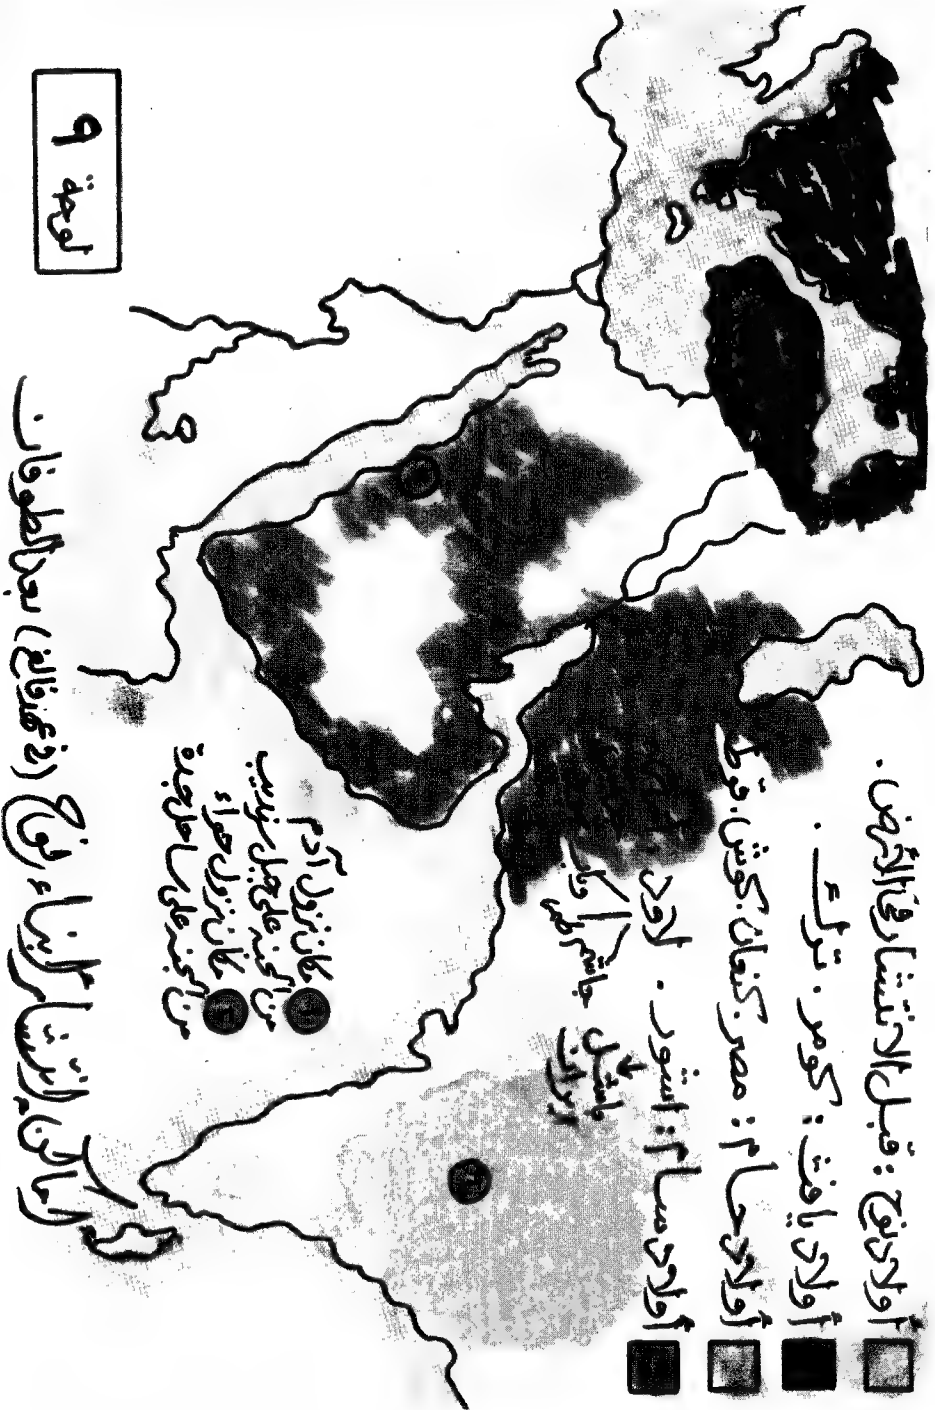 لوحة ٩
أولاد نوح : قبل الانتشار في الأرض .
أولاد يافث : كومر . ترك .
أولاد حام : مصر . كنعان . كوش . قوط
أولاد سام : اشور . لاود
وبار
جاشم
ايران
مكان نزول آدم
من الجنة على جبل سرنديب
مكان نزول حواء
من الجنة على ساحل جدة
أماكن انتشار أبناء نوح
بعد الطوفان